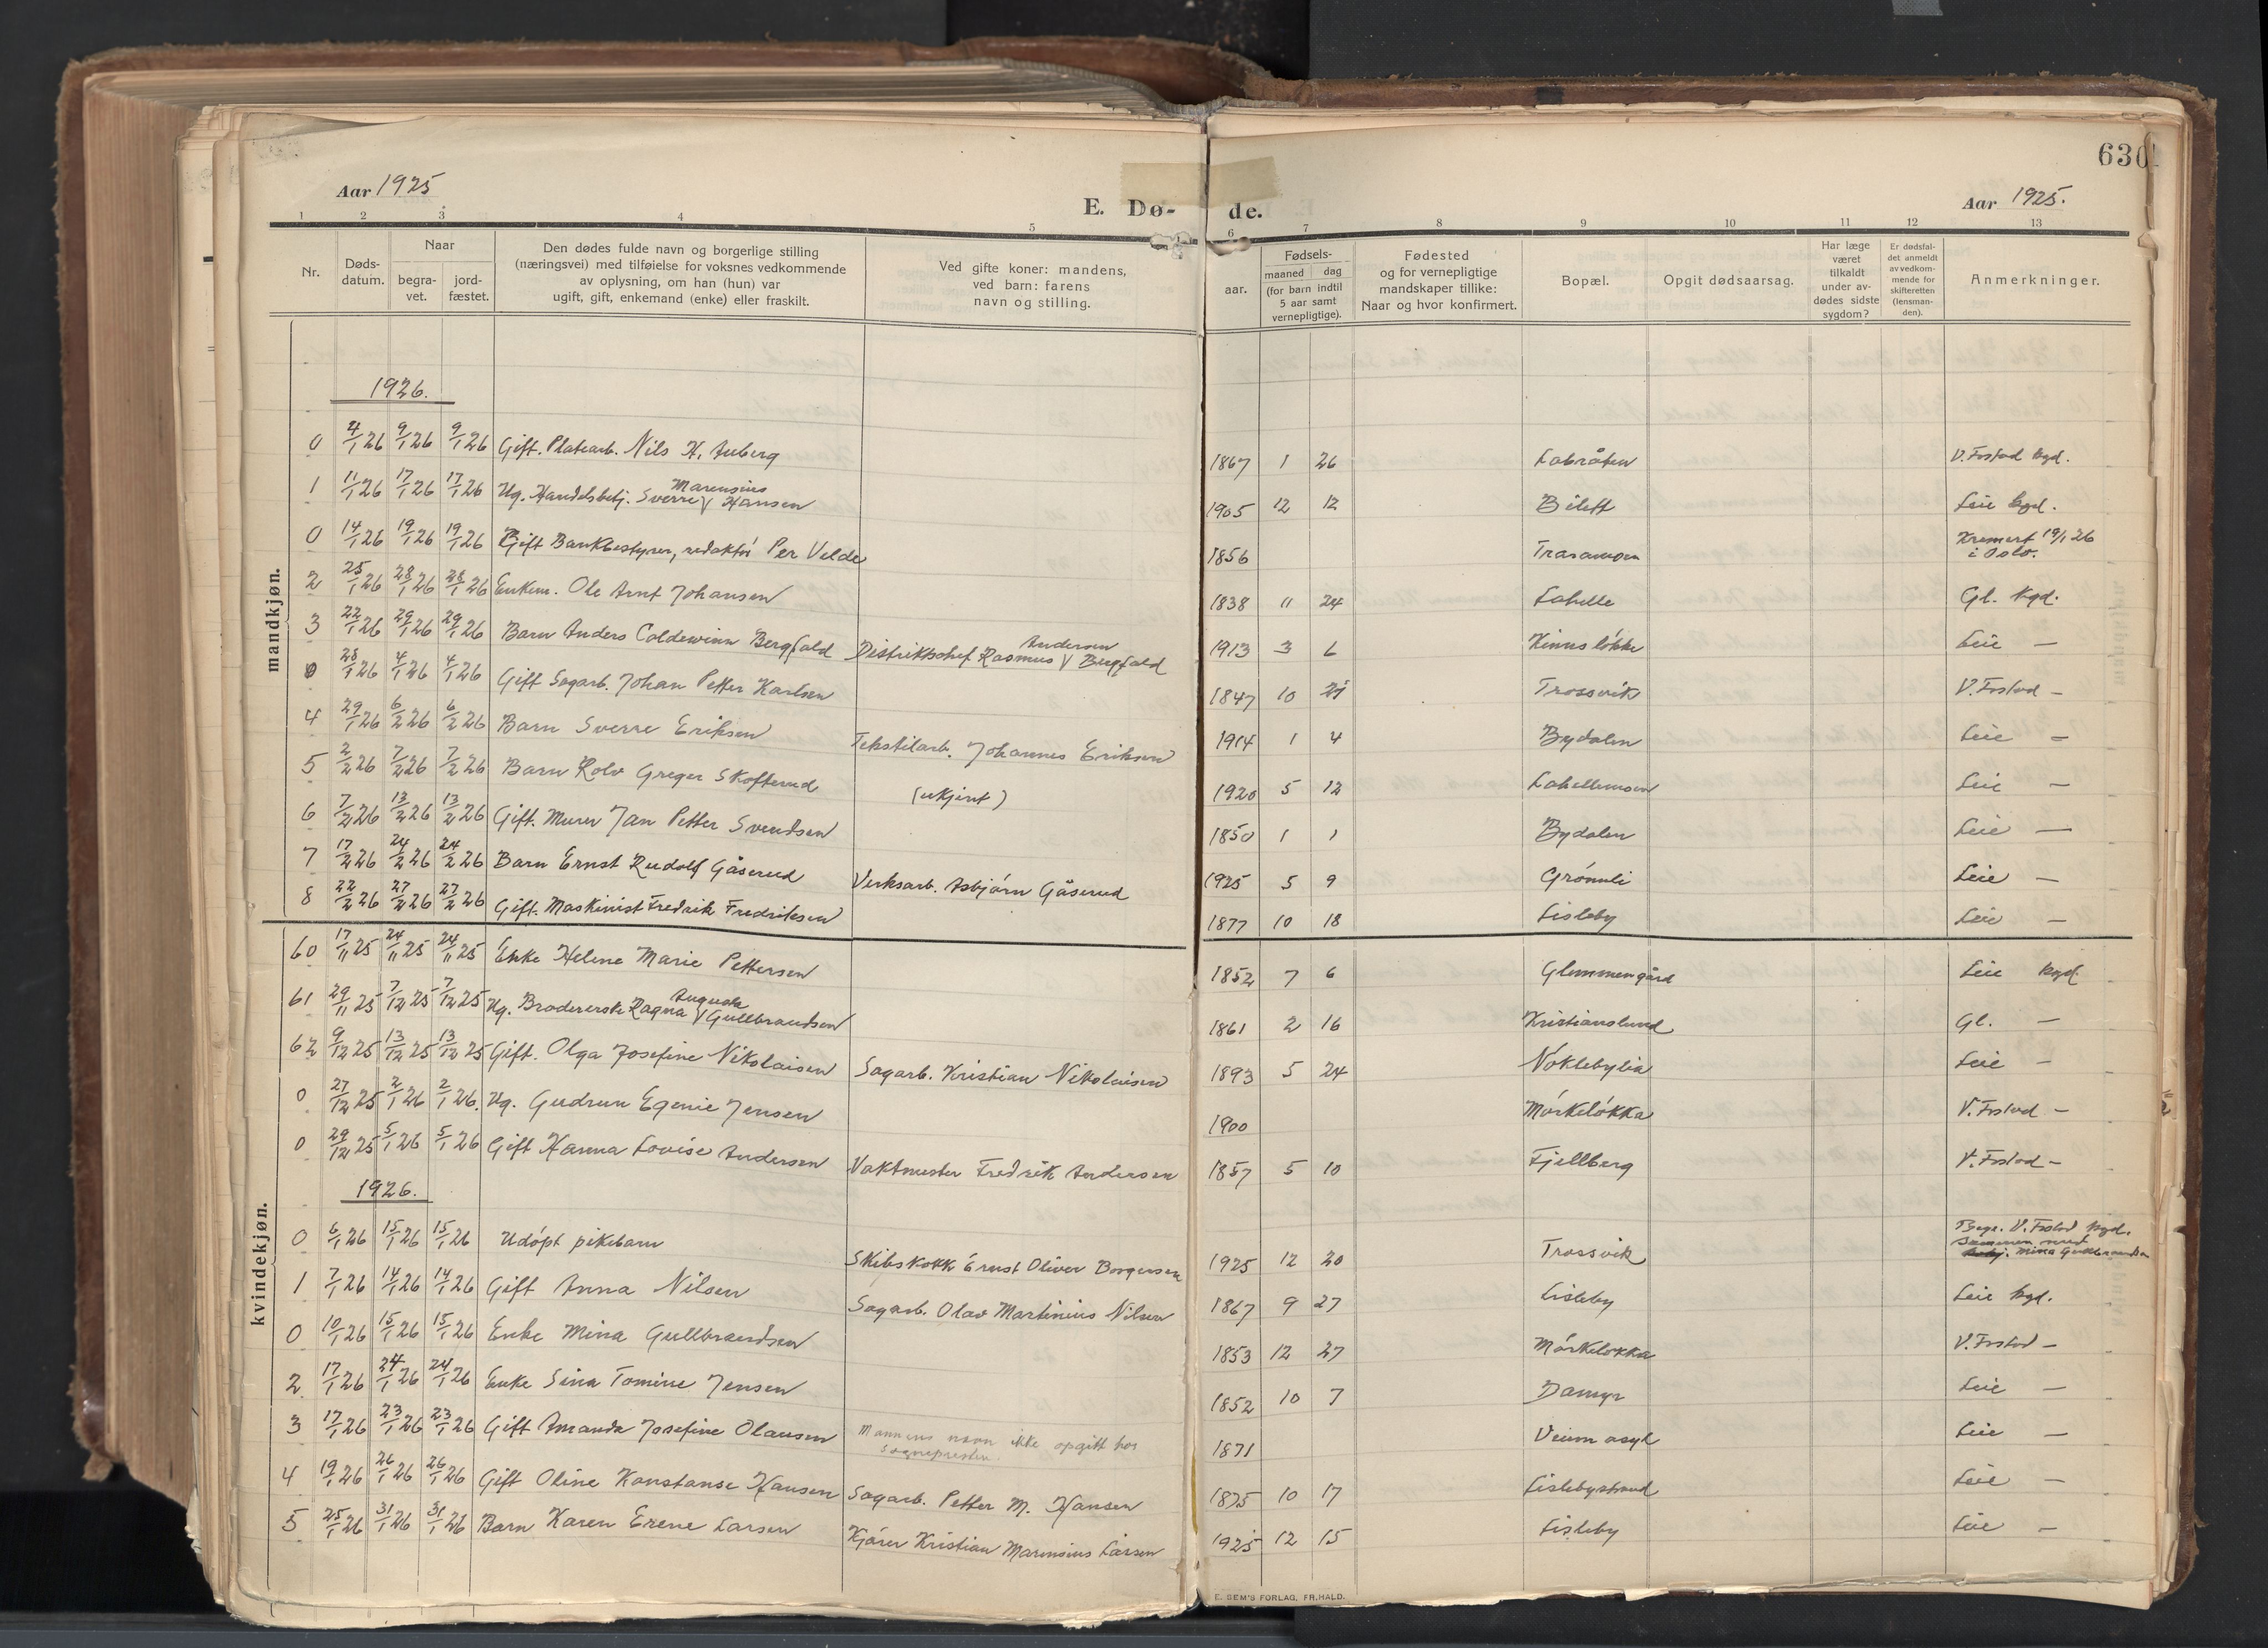 630
Aar 1925
E. Dø- de.
Aar 1925.
1 2 3 4 5 6 7 8 9 10 11 12 13
Nr.
Døds-
datum.
Naar
begra-
vet.
jord-
fæstet.
Den dødes fulde navn og borgerlige stilling
(næringsvei) med tilføielse for voksnes vedkommende
av oplysning, om han (hun) var
ugift, gift, enkemand (enke) eller fraskilt.
Ved gifte koner: mandens,
ved barn: farens
navn og stilling.
Fødsels-
aar.
maaned dag
(for barn indtil
5 aar samt
vernepligtige).
Fødested
og for vernepligtige
mandskaper tillike:
Naar og hvor konfirmert.
Bopæl.
Opgit dødsaarsag.
Har læge
været
tilkaldt
under av-
dødes sidste
sygdom?
Er dødsfal-
det anmeldt
av vedkom-
mende for
skifteretten
(lensman-
den).
Anmerkninger.
mandkjøn.
1926.
0 4/1 26 9/1 26 9/1 26 Gift. Platearb. Nils H. Auberg 1867 1 26 Labråten V. Frstad kgd.
1 11/1 26 17/1 26 17/1 26 Ug. Handelsbetj. Sverre Marensius Hansen 1905 12 12 Bilett Leie kgd.
0 14/1 26 19/1 26 19/1 26 Gift Bankbestyrer, redaktör Per Velde 1856 Traramoen Kremert 19/1 26
i Oslo.
2 25/1 26 28/1 26 28/1 26 Enkem. Ole Arnt Johansen 1838 11 24 Lahelle Gl. kgd.
3 22/1 26 29/1 26 29/1 26 Barn Anders Coldewinn Bergfald Distriktschef Rasmus Andersen Bergfald 1913 3 6 Kinnslökke Leie —
0 28/1 26 4/1 26 4/1 26 Gift Sagarb. Johan Petter Karlsen 1847 10 21 Trossvik V. Frstad —
4 29/1 26 6/2 26 6/2 26 Barn Sverre Eriksen Tekstilarb. Johannes Eriksen 1914 1 4 Bydalen Leie —
5 2/2 26 7/2 26 7/2 26 Barn Rolv Greger Skofterud (ukjent) 1920 5 12 Lahellemoen Leie —
6 7/2 26 13/2 26 13/2 26 Gift. Murer Jan Petter Svendsen 1850 1 1 Bydalen Leie —
7 17/2 26 24/2 26 24/2 26 Barn Ernst Rudolf Gåserud Verksarb. Asbjörn Gåserud 1925 5 9 Grönnli Leie —
8 22/2 26 27/2 26 27/2 26 Gift. Maskinist Fredrik Fredriksen 1877 10 18 Lisleby Leie —
kvindekjøn.
60 17/11 25 24/11 25 24/11 25 Enke Helene Marie Pettersen 1852 7 6 Glemmengård Leie kgd.
61 29/11 25 7/12 25 7/12 25 Ug. Brodererske Ragna Augusta Gullbrandsen 1861 2 16 Kristianslund Gl. —
62 9/12 25 13/12 25 13/12 25 Gift. Olga Josefine Nikolaisen Sagarb. Kristian Nikolaisen 1893 5 24 Nöklebylia Leie —
0 27/12 25 2/1 26 2/1 26. Ug. Gudrun Egenie Jensen 1900 Mörkelökka V. Frstad —
0 29/12 25 5/1 26 5/1 26 Gift Hanna Lovise Andersen Vaktmester Fredrik Andersen 1857 5 10 Fjellberg V. Frstad —
1926.
0 6/1 26 15/1 26 15/1 26 Udöpt pikebarn Skibskokk Ernst Oliver Borgersen 1925 12 20 Trossvik Begr. V. Frstad kgd.
sammen med
Mina Gullbrandsen
1 7/1 26 14/1 26 14/1 26 Gift Anna Nilsen Sagarb. Olav Martinius Nilsen 1867 9 27 Lisleby Leie kgd.
0 10/1 26 15/1 26 15/1 26 Enke Mina Gullbrandsen 1853 12 27 Mörkelökka V. Frstad —
2 17/1 26 24/1 26 24/1 26 Enke Sina Tomine Jensen 1852 10 7 Damyr Leie —
3 17/1 26 23/1 26 23/1 26 Gift Amanda Josefine Olausen Mannens navn ikke opgitt hos
sognepresten. 1871 Veum asyl Leie —
4 19/1 26 26/1 26 26/1 26 Gift Oline Konstanse Hansen Sagarb. Petter M. Hansen 1875 10 17 Lislebystrand Leie —
5 25/1 26 31/1 26 31/1 26 Barn Karen Erene Larsen Kjörer Kristian Marensius Larsen 1925 12 15 Lisleby Leie —
E. SEM'S FORLAG, FR.HALD.